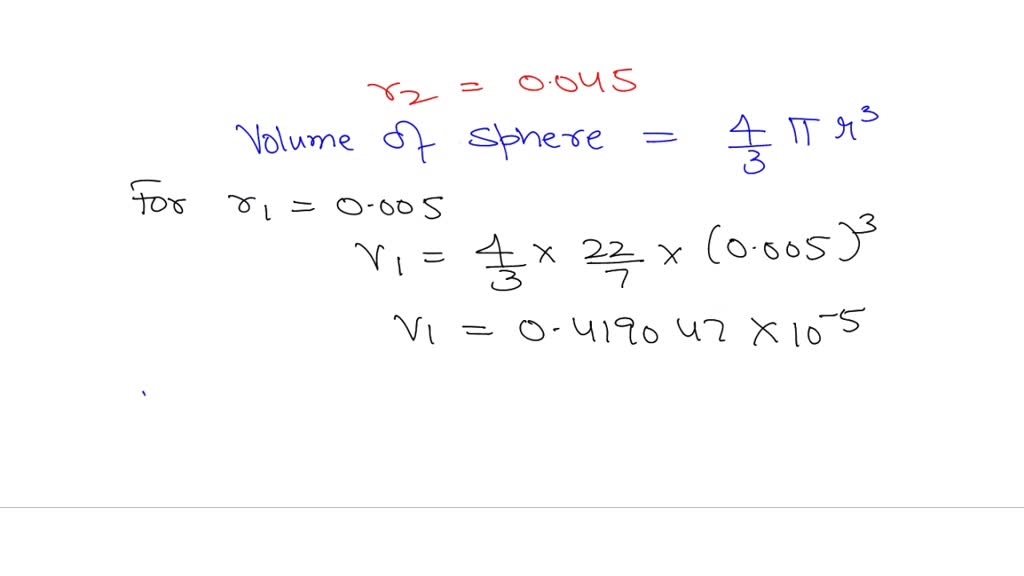 r2 = 0.045
Volume of sphere = 4/3 π r³
For r1 = 0.005
V1 = 4/3 × 22/7 × (0.005)³
V1 = 0.419047 × 10⁻⁵